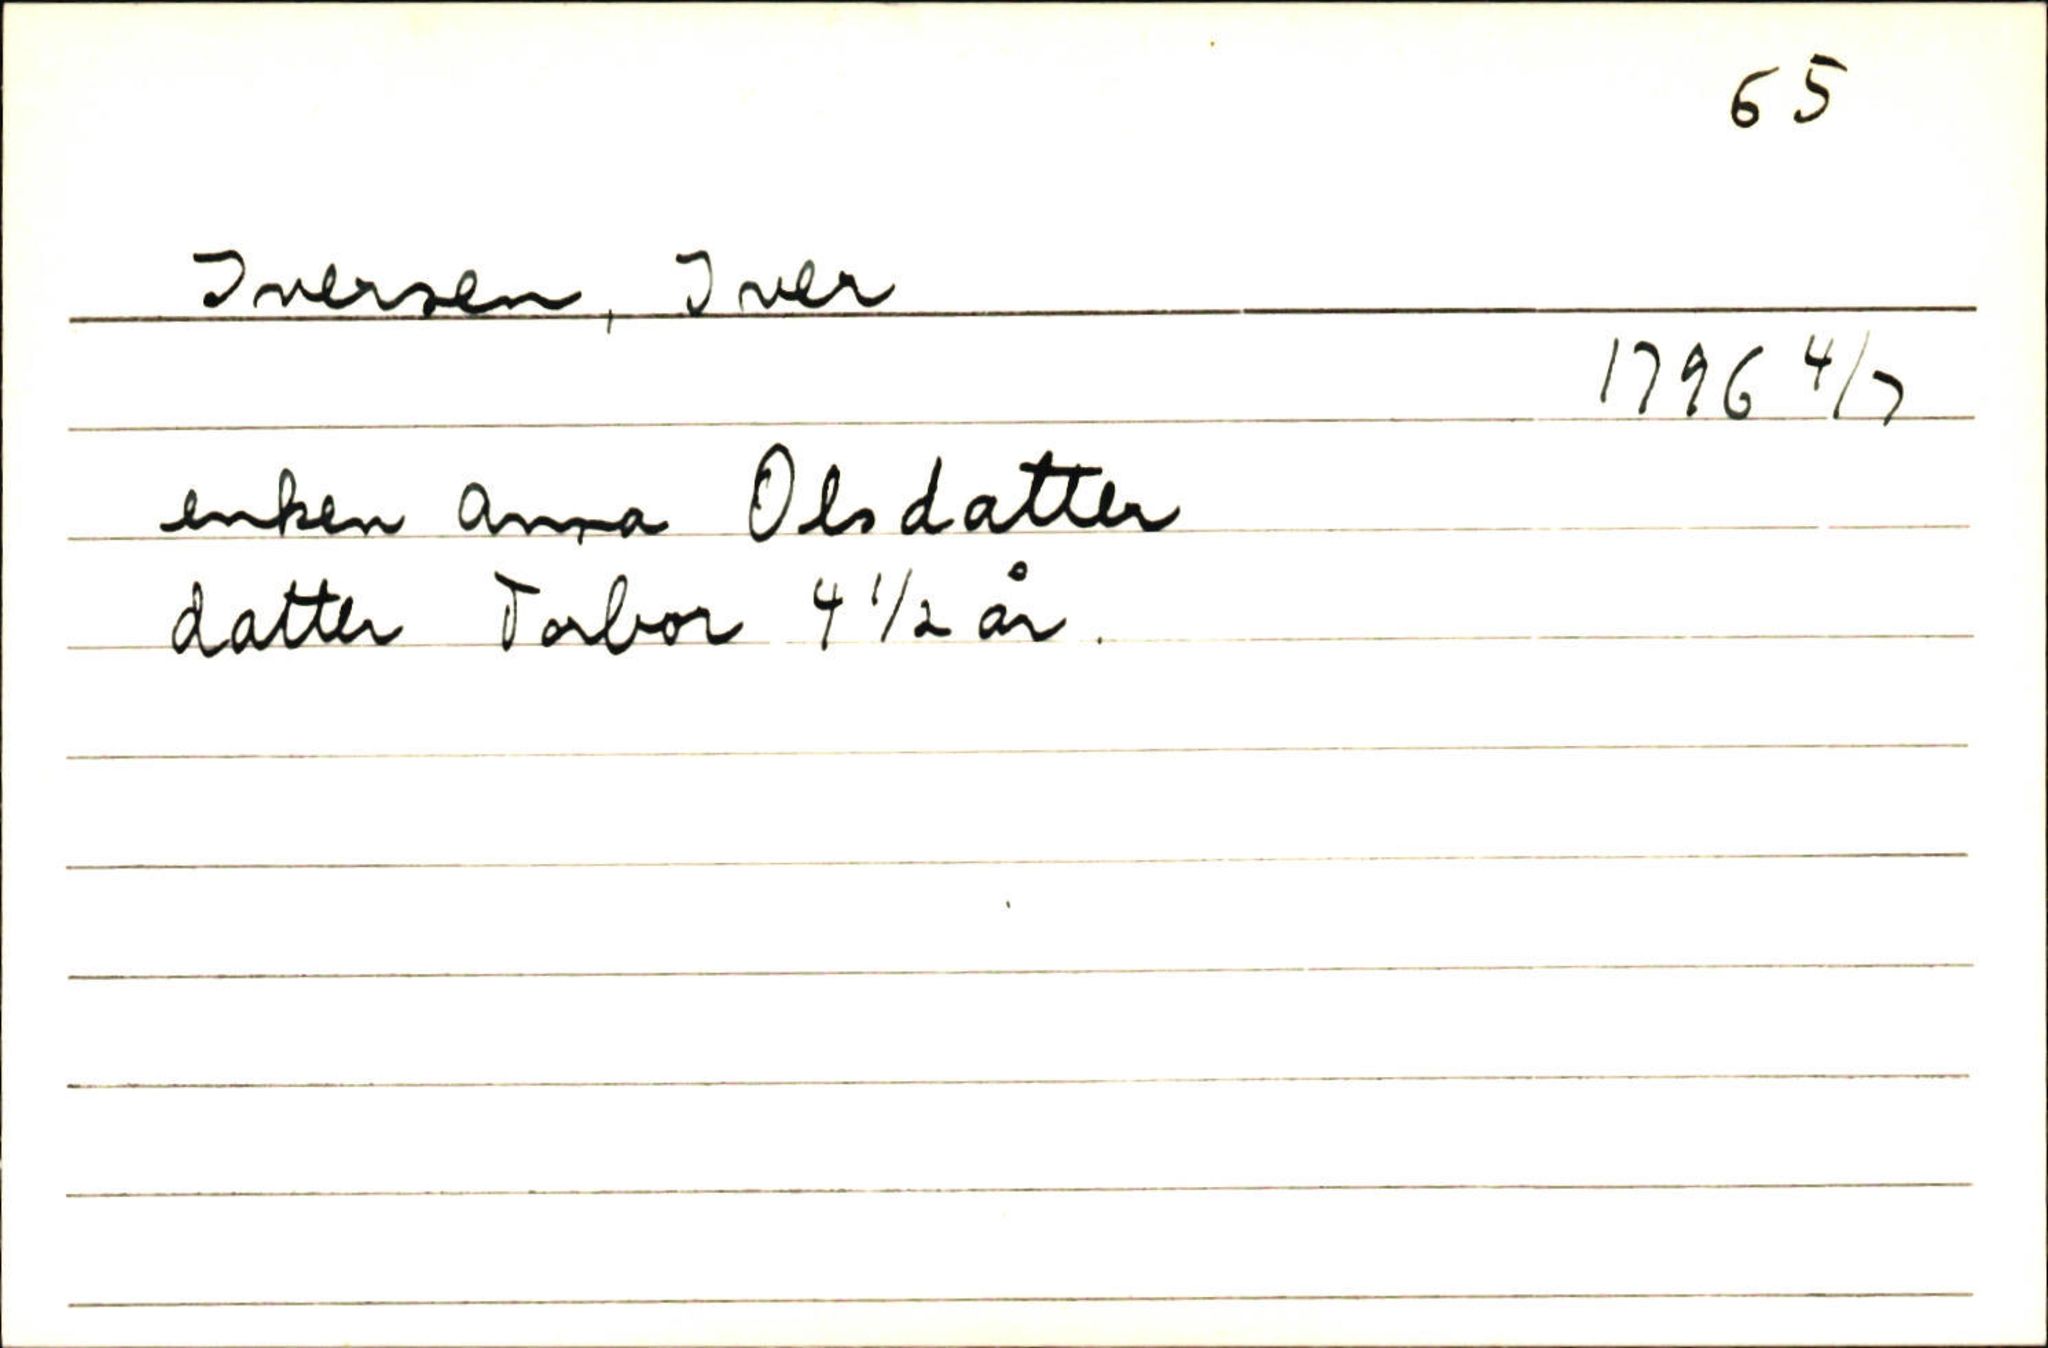 65
Iversen, Iver
1796 4/7
enken Anna Olsdatter
datter Torbor 4 1/2 år.